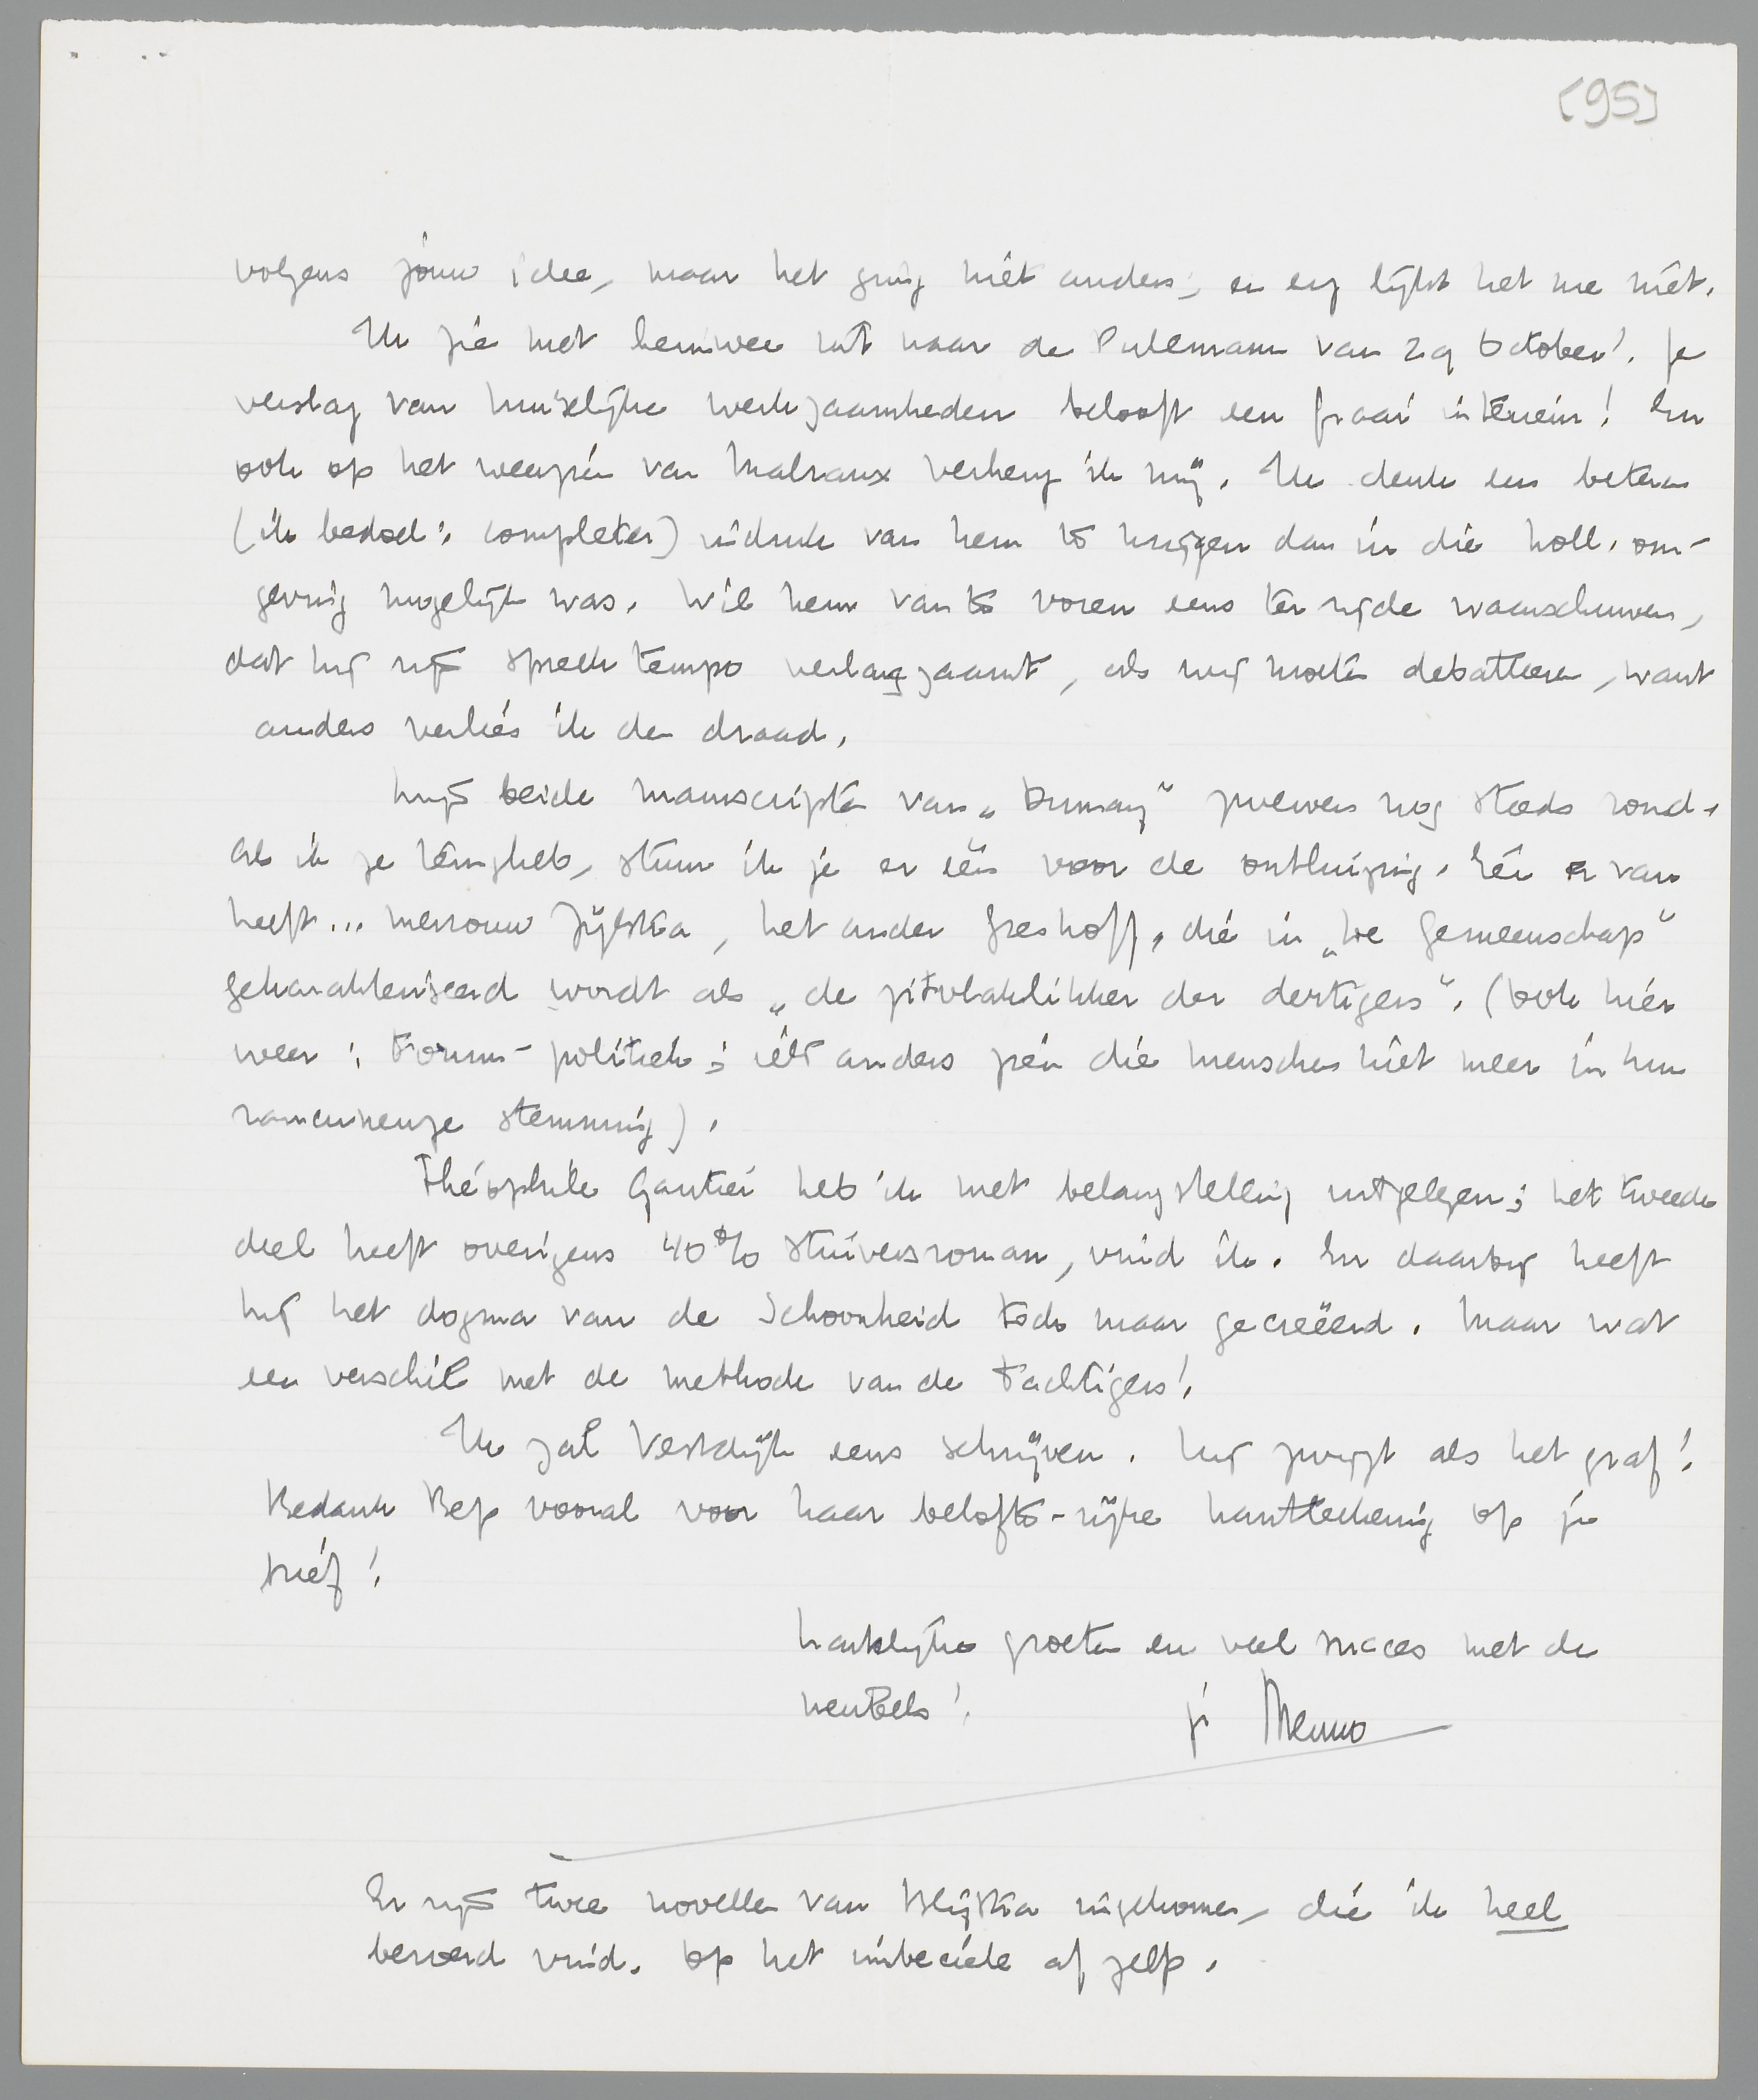 [95]
volgens jouw idee, maar het ging niet anders, en erg lijkt het me niet.
Ik zie met heimwee uit naar de Pullemann van 29 October! Je
verslag van huiselijke werkzaamheden belooft een fraai interieur! En
ook op het weerzien van Malraux verheug ik mij. Ik denk een beteren
(ik bedoel: completer) indruk van hem te krijgen dan in die holl. om-
geving mogelijk was. Wil hem van te voren eens ter zijde waarschuwen,
dat hij zijn spreektempo verlangzaamt, als wij moeten debatteeren, want
anders verlies ik den draad.
Mijn beide manuscripten van „Dumay” zwerven nog steeds rond.
Als ik ze terug heb, stuur ik je er één voor de ontluizing. Eén er van
heeft... mevrouw Zijlstra, het ander Greshoff, die in „De Gemeenschap”
gekarakteriseerd wordt als „de zitvlaklikker der dertigers”. (Ook hier
weer: Forum-politiek; iets anders zien die menschen niet meer in hun
rancuneuze stemming).
Théophile Gautier heb ik met belangstelling uitgelezen; het tweede
deel heeft overigens 40% stuiversroman, vind ik. En daarbij heeft
hij het dogma van de Schoonheid toch maar gecreëerd. Maar wat
een verschil met de methode van de Tachtigers!
Ik zal Vestdijk eens schrijven. Hij zwijgt als het graf!
Bedank Bep vooral voor haar belofte-rijke hantteekening op je
brief!
Hartelijke groeten en veel succes met de
meubels!
je Menno
Er zijn twee novellen van Blijstra ingekomen, die ik heel
beroerd vind. Op het imbeciele af zelfs.